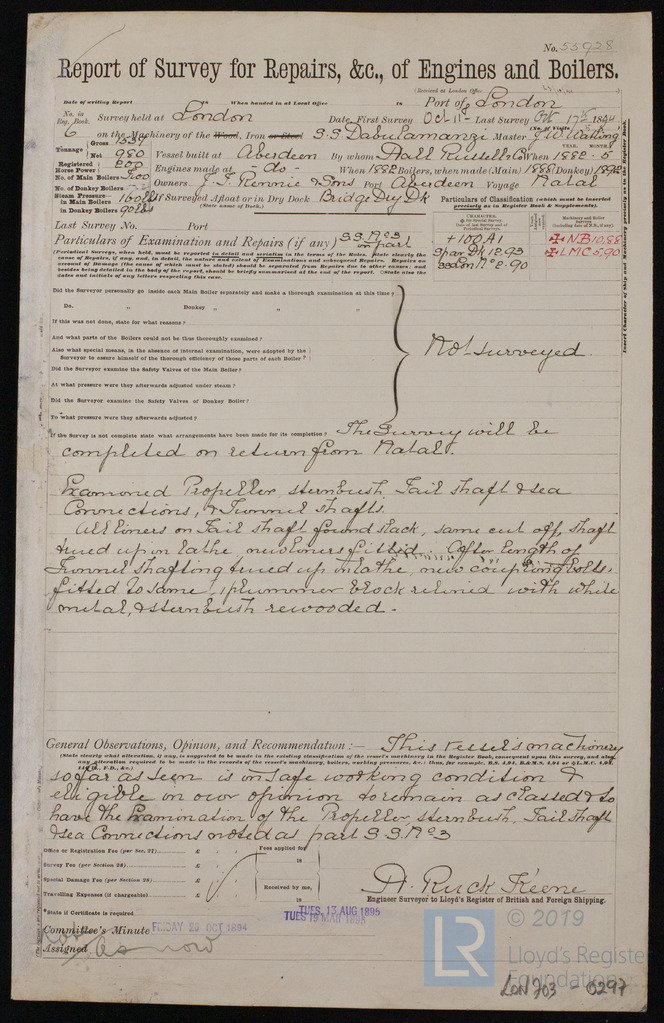 No. 55928
Report of Survey for Repairs, &c., of Engines and Boilers.
(Received at London Office
Date of writing Report 18 When handed in at Local Office 18 Port of London
No. in Reg. Book. Survey held at London Date, First Survey Oct 11th Last Survey Oct 17th 1894
6 on the Machinery of the Wood, Iron or Steel S.S. Dabulamanzi Master J. W. Watling
(No. of Visits)
YEAR. MONTH.
Tonnage Gross
Net 980 Vessel built at Aberdeen By whom Hall Russell & Co When 1882 - 5
Registered Horse Power 200 Engines made at - do - When 1882 Boilers, when made (Main) 1888 (Donkey)
No. of Main Boilers
No. of Donkey Boilers Owners J. T. Rennie & Sons Port Aberdeen Voyage Natal
Steam Pressure in Main Boilers 160 lbs If Surveyed Afloat or in Dry Dock Bridge Dry Dk
(State name of Dock.)
in Donkey Boilers 90 lbs
Particulars of Classification (which must be inserted precisely as in Register Book & Supplements).
Last Survey No. Port
CHARACTER.
Machinery and Boiler Surveys
Particulars of Examination and Repairs (if any) S.S. No 3 in part
+100 A1
Spar Dk 12.93
SS Lon No 2-90
NB 10,88
LMC 5,90
Insert Character of Ship and Machinery precisely as in the Register Book.
(Periodical Surveys, when held, must be reported in detail and seriatim in the terms of the Rules. State clearly the
cause of Repairs, if any, and, in detail, the nature and extent of Examinations and subsequent Repairs. Repairs on
account of Damage (the cause of which must be stated) should be separated from Repairs due to other causes; and
besides being detailed in the body of the report, should be briefly summarised at the end of the report. State also the
dates and initials of any letters respecting this case.
Did the Surveyor personally go inside each Main Boiler separately and make a thorough examination at this time?
Do. " Donkey " " "
If this was not done, state for what reasons?
And what parts of the Boilers could not be thus thoroughly examined?
Also what special means, in the absence of internal examination, were adopted by the
Surveyor to assure himself of the thorough efficiency of those parts of each Boiler?
Not surveyed.
Did the Surveyor examine the Safety Valves of the Main Boiler?
At what pressure were they afterwards adjusted under steam?
Did the Surveyor examine the Safety Valves of Donkey Boiler?
To what pressure were they afterwards adjusted?
If the Survey is not complete state what arrangements have been made for its completion? The Survey will be
completed on return from Natal.
Examined Propeller, sternbush, Tail shaft & sea
Connections, & Tunnel shafts.
All liners on Tail shaft found slack, same cut off, shaft
trued up in lathe, new liners fitted. After length of
Tunnel shafting trued up in lathe, new coupling bolts
fitted to same, plummer block relined with white
metal, & sternbush rewooded.
General Observations, Opinion, and Recommendation:— This vessel's machinery
(State clearly what alteration, if any, is suggested to be made in the existing classification of the vessel's machinery in the Register Book, consequent upon this survey, and also
any alteration required to be made in the records of the vessel's machinery, boilers, working pressures, &c.: thus, for example, B.S. 4.94, B.&M.S. 4.94 or L.M.C. 4.94,
so far as seen is in safe working condition &
eligible in our opinion to remain as classed & to
have the Examination of the Propeller, sternbush, Tail shaft
& sea Connections noted as part S.S. No 3
Office or Registration Fee (per Sec. 27) £
Fees applied for
18
Survey Fee (per Section 28) £
Special Damage Fee (per Section 28) £
Received by me,
Travelling Expenses (if chargeable) £
18
A. Ruck Keene
Engineer Surveyor to Lloyd's Register of British and Foreign Shipping.
*State if Certificate is required
TUES. 13 AUG 1895
TUES. 19 MAR 1895
Committee's Minute FRIDAY 26 OCT 1894
Assigned As now
LR
© 2019
Lloyd's Register
Foundation
LON 703 - 0297